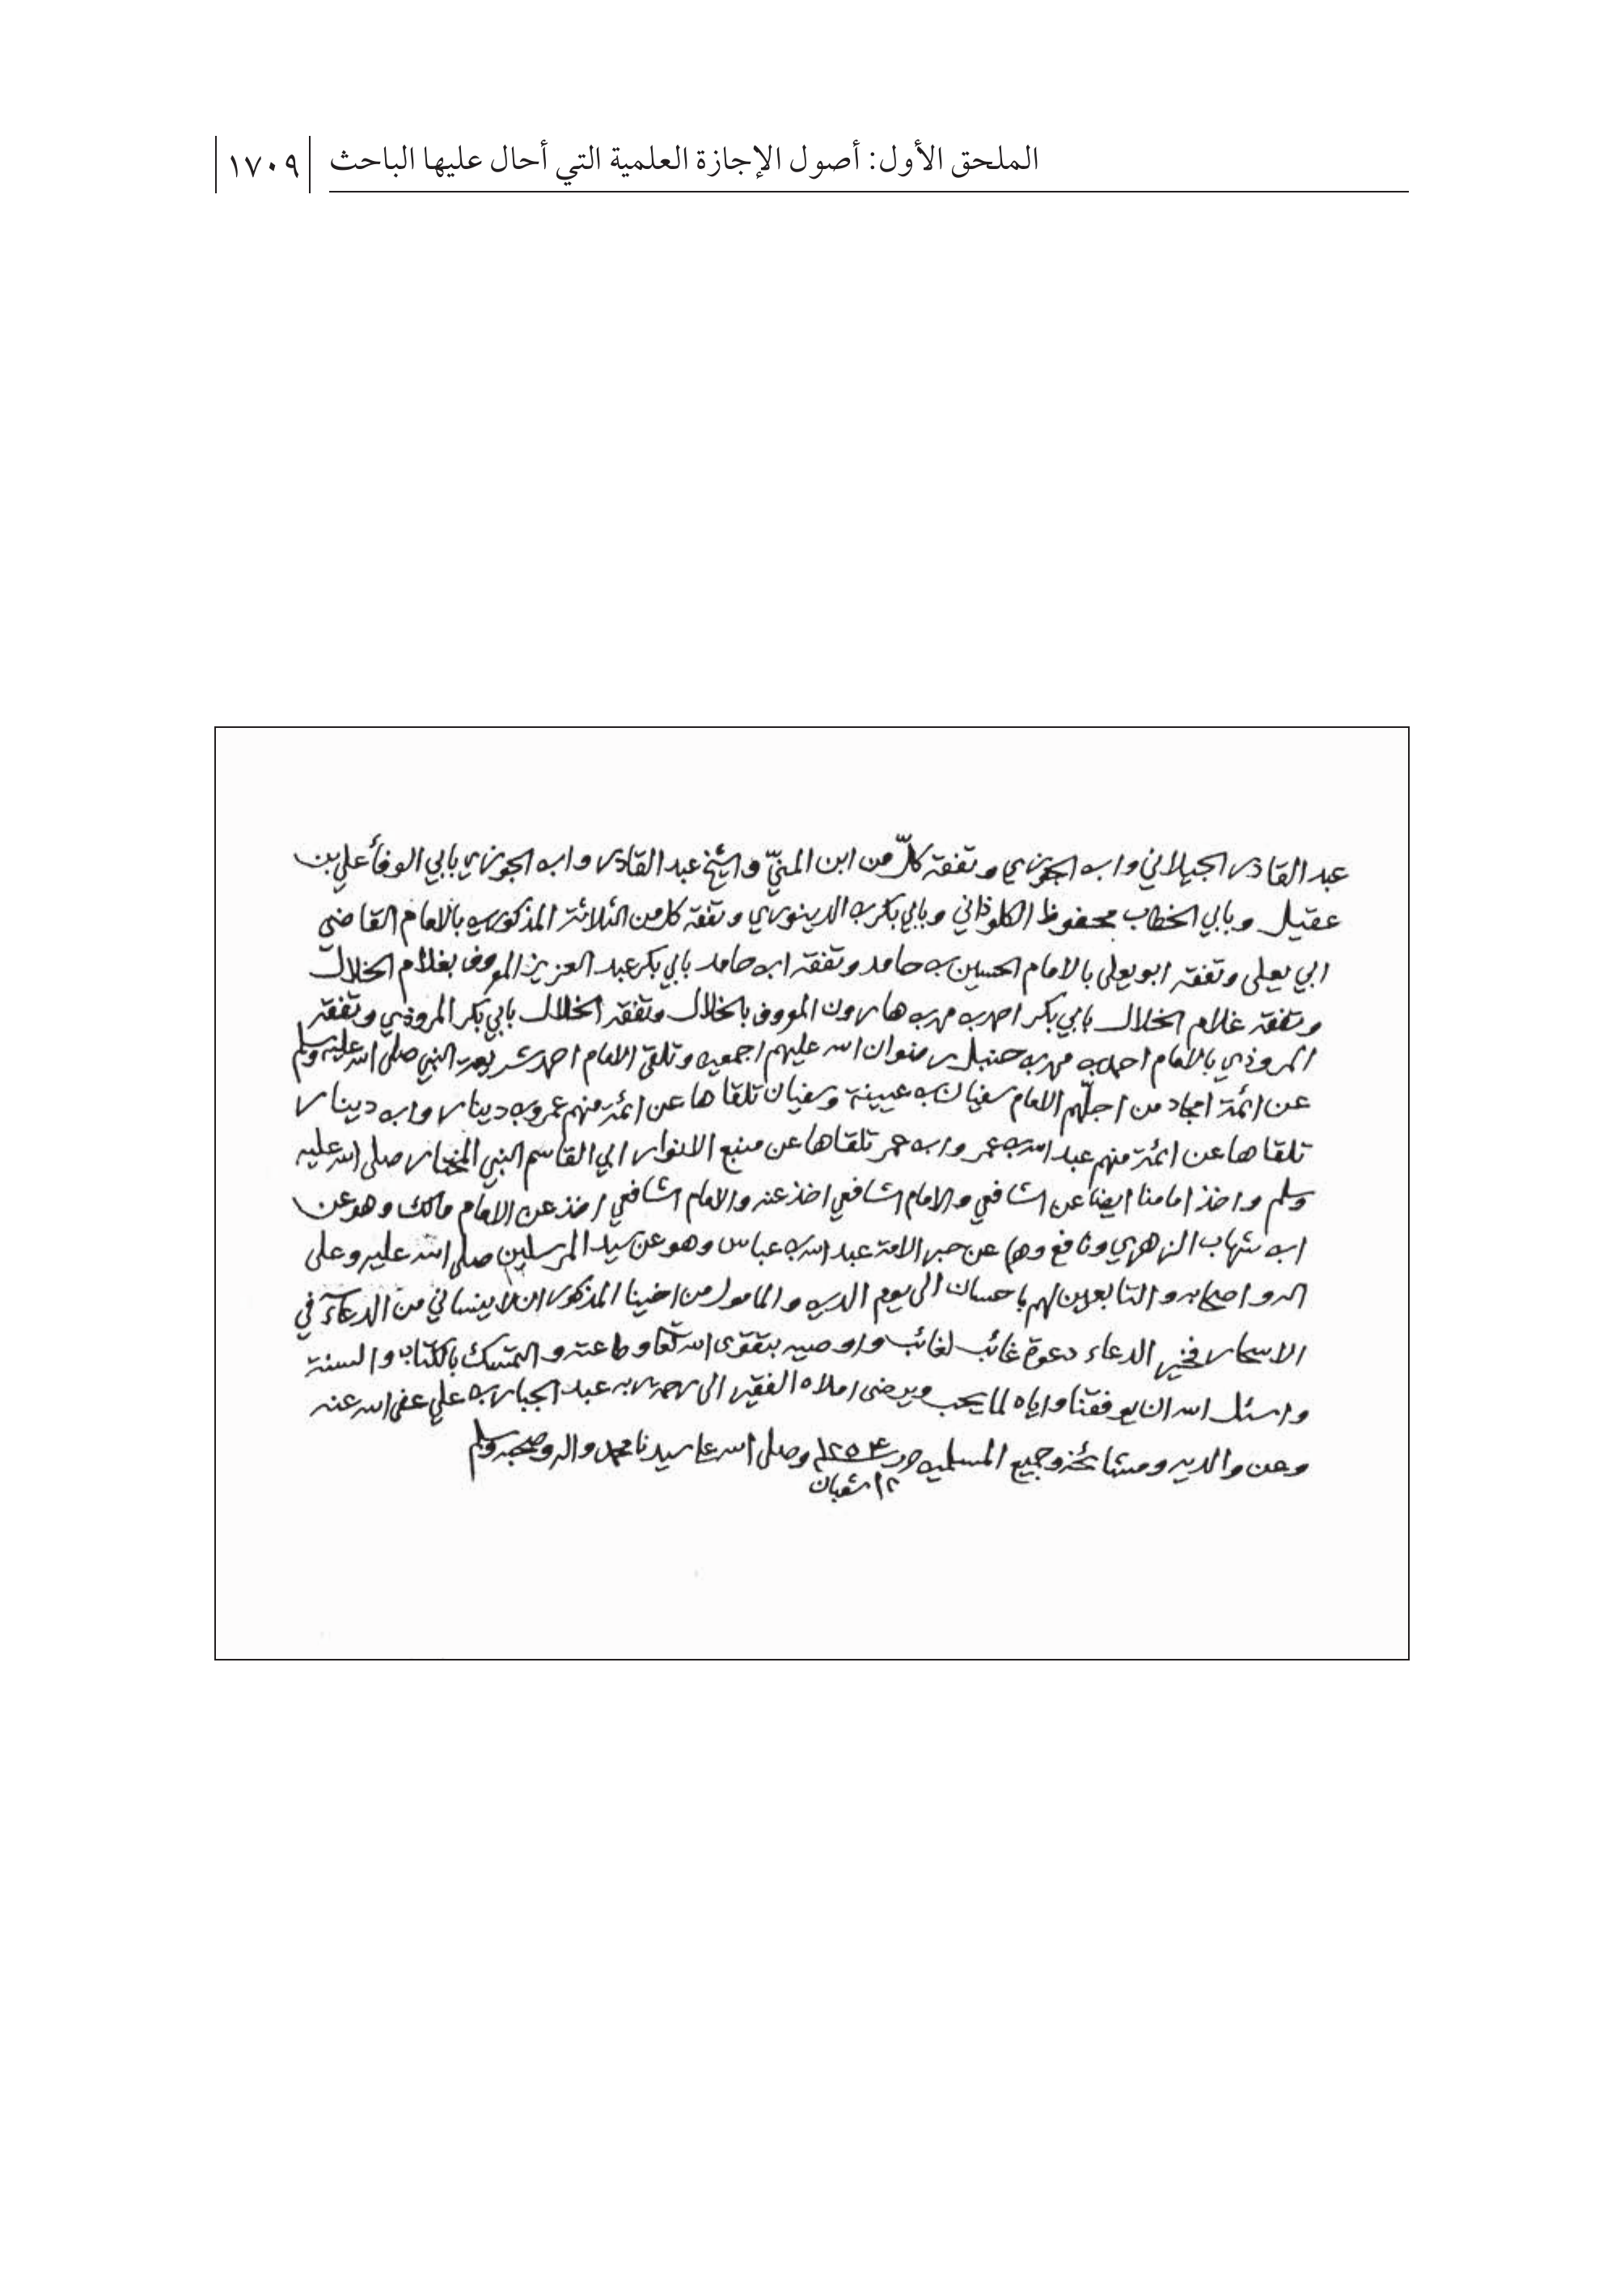 الملحق الأول: أصول الإجازة العلمية التي أحال عليها الباحث ١٧٠٩
عبد القادر الجيلاني وابن الجوزي وتفقه كلّ من ابن المنيّ والشيخ عبد القادر وابن الجوزي بابي الوفأ علي بن
عقيل وبابي الخطاب محفوظ الكلوذاني وبابي بكر بن الدينوري وتفقه كل من الثلاثة المذكورين بالامام القاضي
ابي يعلى وتفقه ابو يعلى بالامام الحسين بن حامد وتفقه ابن حامد بابي بكر عبد العزيز المعروف بغلام الخلال
وتفقه غلام الخلال بابي بكر احمد بن محمد بن هارون المعروف بالخلال وتفقه الخلال بابي بكر المروذي وتفقه
المروذي بالامام احمد بن محمد بن حنبل رضوان الله عليهم اجمعين وتلقى الامام احمد شريعة النبي صلى الله عليه وسلم
عن ائمة امجاد من اجلّهم الامام سفيان بن عيينة وسفيان تلقاها عن ائمة منهم عمرو بن دينار وابن دينار
تلقاها عن ائمة منهم عبد الله بن عمر وابن عمر تلقاها عن منبع الانوار ابي القاسم النبي المختار صلى الله عليه
وسلم واخذ امامنا ايضا عن الشافعي والامام الشافعي اخذ عنه والامام الشافعي اخذ عن الامام مالك وهو عن
ابن شهاب الزهري ونافع وهما عن حبر الامة عبد الله بن عباس وهو عن سيد المرسلين صلى الله عليه وعلى
اله واصحابه والتابعين لهم باحسان الى يوم الدين والمامول من اخينا المذكور ان لا ينساني من الدعآء في
الاسحار فخير الدعاء دعوة غائب لغائب واوصيه بتقوى الله تعا وطاعته والتمسك بالكتاب والسنة
واسئل الله ان يوفقنا واياه لما يحب ويرضى املاه الفقير الى رحمة ربه عبد الجبار بن علي عفى الله عنه
وعن والديه ومشائخه وجميع المسلمين ١٢٥٤ وصلى الله على سيدنا محمد واله وصحبه وسلم
١٢ شعبان